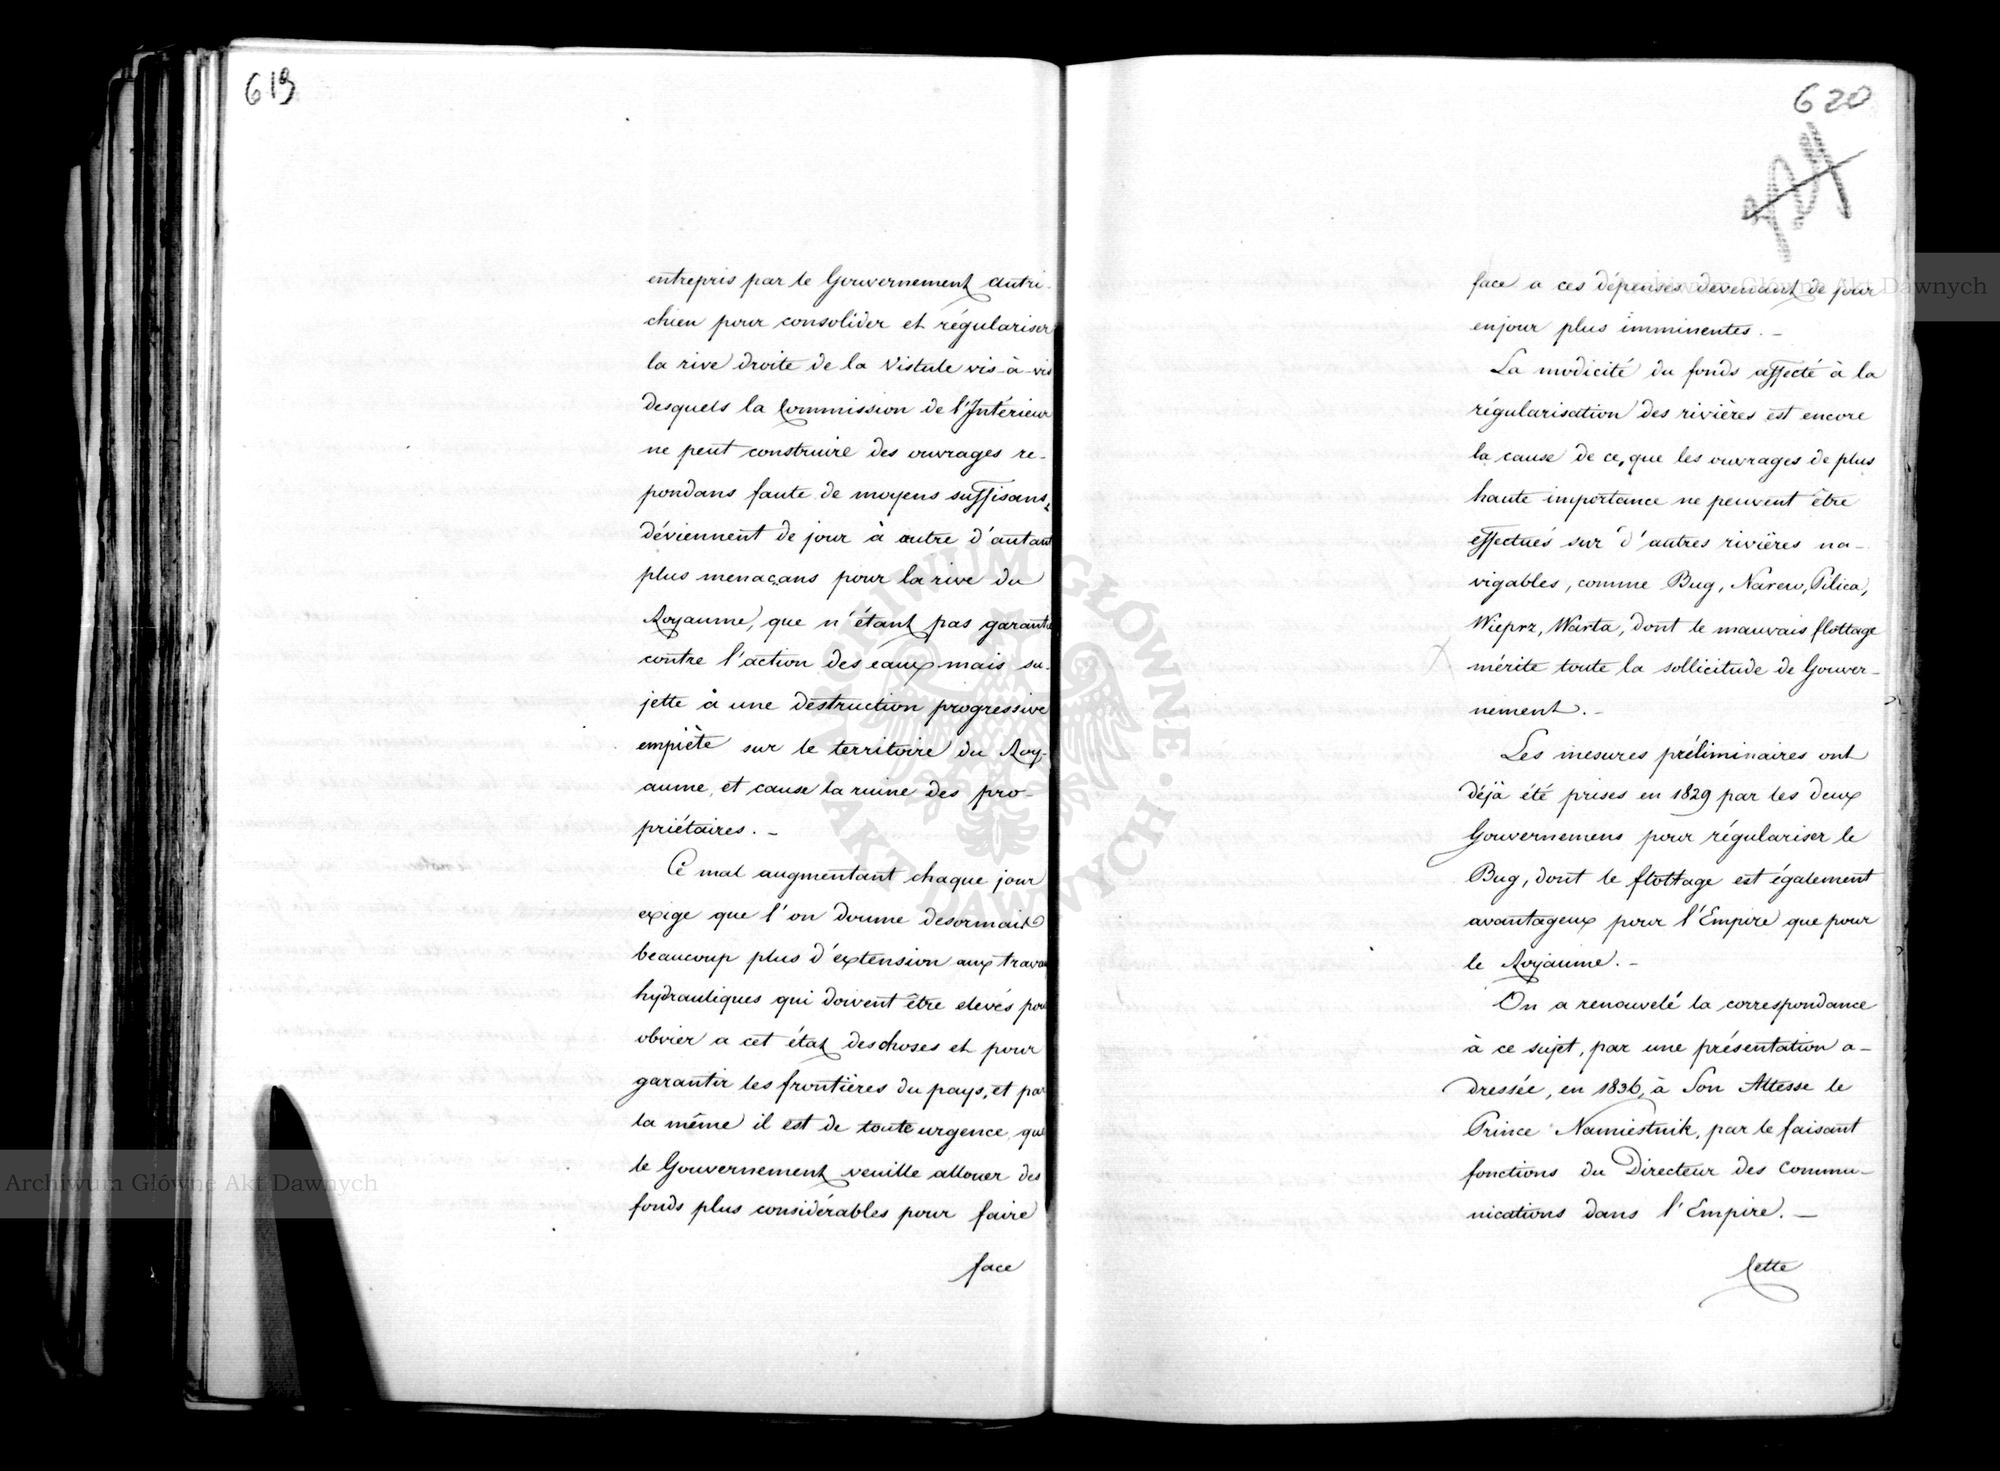 619
entrepris par le Gouvernement autri-
chien pour consolider et régulariser
la rive droite de la Vistule vis-à-vis
desquels la Commission de l'Intérieur
ne peut construire des ouvrages re-
pondans faute de moyens suffisans,
déviennent de jour à autre d'autant
plus menaçans pour la rive du
Royaume, que n'étant pas garantie
contre l'action des eaux mais su-
jette à une destruction progressive
empiète sur le territoire du Roy-
aume, et cause la ruine des pro-
priétaires. -
Ce mal augmentant chaque jour
exige que l'on donne desormais
beaucoup plus d'extension aux travaux
hydrauliques qui doivent être elevés pour
obvier a cet état des choses et pour
garantir les frontières du pays, et par
la même il est de toute urgence, que
le Gouvernement veuille allouer des
fonds plus considérables pour faire
face
620
face a ces dépenses devenant de jour
en jour plus imminentes. -
La modicité du fonds affecté à la
régularisation des rivières est encore
la cause de ce, que les ouvrages de plus
haute importance ne peuvent être
effectués sur d'autres rivières na-
vigables, comme Bug, Narew, Pilica,
Wieprz, Warta, dont le mauvais flottage
mérite toute la sollicitude de Gouver-
nement. -
Les mesures préliminaires ont
déjà été prises en 1829 par les deux
Gouvernemens pour régulariser le
Bug, dont le flottage est également
avantageux pour l'Empire que pour
le Royaume. -
On a renouvelé la correspondance
à ce sujet, par une présentation a-
dressée, en 1836, à Son Altesse le
Prince Namiestnik, par le faisant
fonctions du Directeur des Commu-
nications dans l'Empire. -
Cette
Archiwum Główne Akt Dawnych
Archiwum Główne Akt Dawnych
ARCHIWUM GŁÓWNE · AKT DAWNYCH ·